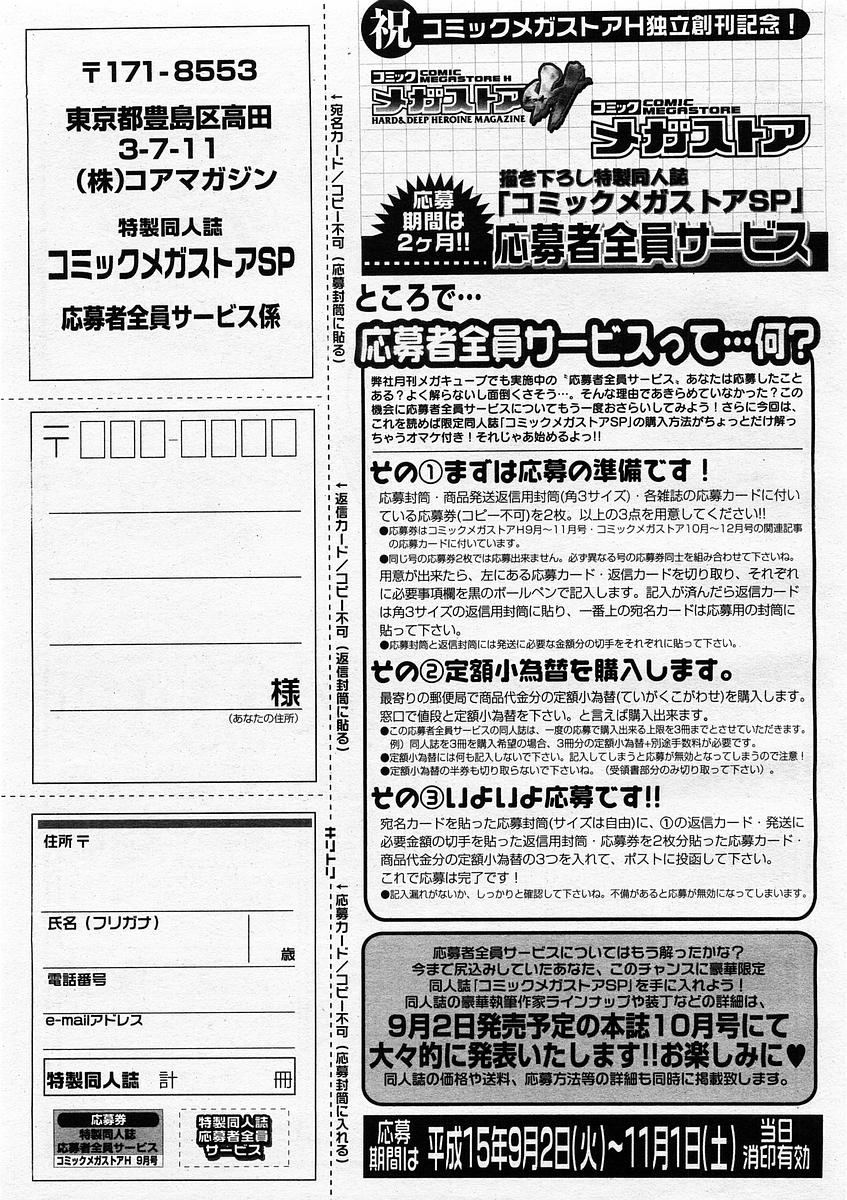 祝 コミックメガストアH独立創刊記念！
コミック COMIC MEGASTORE H
メガストア
HARD&DEEP HEROINE MAGAZINE
コミック COMIC MEGASTORE
メガストア
応募
期間は
2ヶ月!!
描き下ろし特製同人誌
「コミックメガストアSP」
応募者全員サービス
ところで…
応募者全員サービスって…何？
弊社月刊メガキューブでも実施中の〝応募者全員サービス〟あなたは応募したこと
ある？よく解らないし面倒くさそう…。そんな理由であきらめていなかった？この
機会に応募者全員サービスについてもう一度おさらいしてみよう！さらに今回は、
これを読めば限定同人誌「コミックメガストアSP」の購入方法がちょっとだけ解っ
ちゃうオマケ付き！それじゃあ始めるよっ!!
その①まずは応募の準備です！
応募封筒・商品発送返信用封筒(角3サイズ)・各雑誌の応募カードに付い
ている応募券(コピー不可)を2枚。以上の3点を用意してください!!
●応募券はコミックメガストアH9月〜11月号・コミックメガストア10月〜12月号の関連記事
の応募カードに付いています。
●同じ号の応募券2枚では応募出来ません。必ず異なる号の応募券同士を組み合わせて下さいね。
用意が出来たら、左にある応募カード・返信カードを切り取り、それぞれ
に必要事項欄を黒のボールペンで記入します。記入が済んだら返信カード
は角3サイズの返信用封筒に貼り、一番上の宛名カードは応募用の封筒に
貼って下さい。
●応募封筒と返信封筒には発送に必要な金額分の切手をそれぞれに貼って下さい。
その②定額小為替を購入します。
最寄りの郵便局で商品代金分の定額小為替(ていがくこがわせ)を購入します。
窓口で値段と定額小為替を下さい。と言えば購入出来ます。
●この応募者全員サービスの同人誌は、一度の応募で購入出来る上限を3冊までとさせていただきます。
例）同人誌を3冊を購入希望の場合、3冊分の定額小為替+別途手数料が必要です。
●定額小為替には何も記入しないで下さい。記入してしまうと応募が無効となってしまうので注意！
●定額小為替の半券も切り取らないで下さいね。（受領書部分のみ切り取って下さい）。
その③いよいよ応募です!!
宛名カードを貼った応募封筒(サイズは自由)に、①の返信カード・発送に
必要金額の切手を貼った返信用封筒・応募券を2枚分貼った応募カード・
商品代金分の定額小為替の3つを入れて、ポストに投函して下さい。
これで応募は完了です！
●記入漏れがないか、しっかりと確認して下さいね。不備があると応募が無効になってしまいます。
応募者全員サービスについてはもう解ったかな？
今まで尻込みしていたあなた、このチャンスに豪華限定
同人誌「コミックメガストアSP」を手に入れよう！
同人誌の豪華執筆作家ラインナップや装丁などの詳細は、
9月2日発売予定の本誌10月号にて
大々的に発表いたします!!お楽しみに♥
同人誌の価格や送料、応募方法等の詳細も同時に掲載致します。
応募
期間は 平成15年9月2日(火)〜11月1日(土) 当日
消印有効
〒171-8553
東京都豊島区高田
3-7-11
(株)コアマガジン
特製同人誌
コミックメガストアSP
応募者全員サービス係
←宛名カード／コピー不可（応募封筒に貼る）
〒
様
（あなたの住所）
←返信カード／コピー不可（返信封筒に貼る）
キリトリ
住所 〒
氏名（フリガナ）
歳
電話番号
e-mailアドレス
特製同人誌 計 冊
応募券
特製同人誌
応募者全員サービス
コミックメガストアH 9月号
特製同人誌
応募者全員
サービス
←応募カード／コピー不可（応募封筒に入れる）